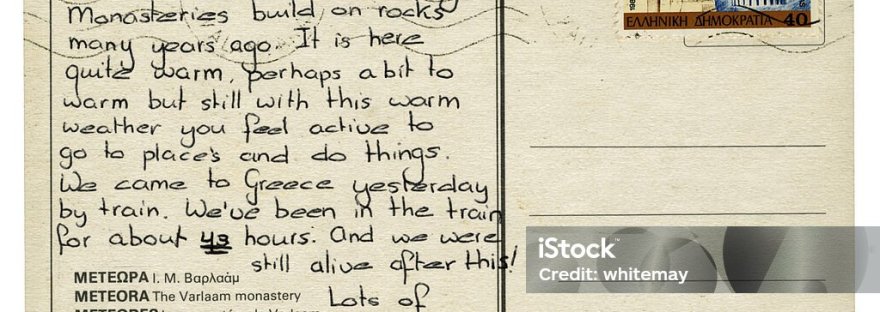 Monasteries build on rocks
many years ago. It is here
quite warm, perhaps a bit to
warm but still with this warm
weather you feel active to
go to places and do things.
We came to Greece yesterday
by train. We've been in the train
for about 43 hours. And we were
still alive after this!
Lots of
ΜΕΤΕΩΡΑ Ι. Μ. Βαρλαάμ
METEORA The Varlaam monastery
METEORES
ΕΛΛΗΝΙΚΗ ΔΗΜΟΚΡΑΤΙΑ 40
iStock
Credit: whitemay